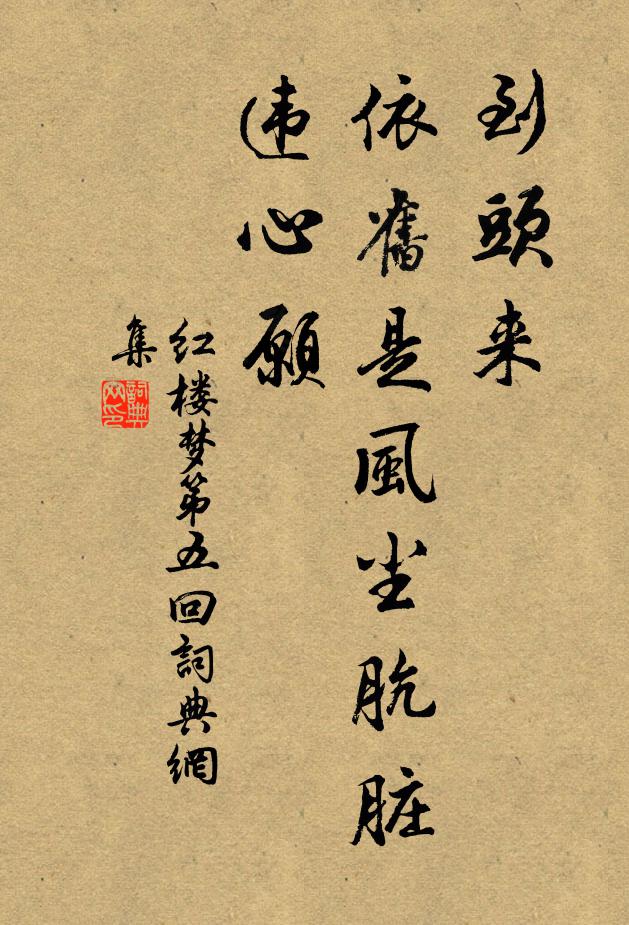 到頭来
依舊是風尘肮脏
违心願
红楼梦第五回詞典網
集
詞典
网印